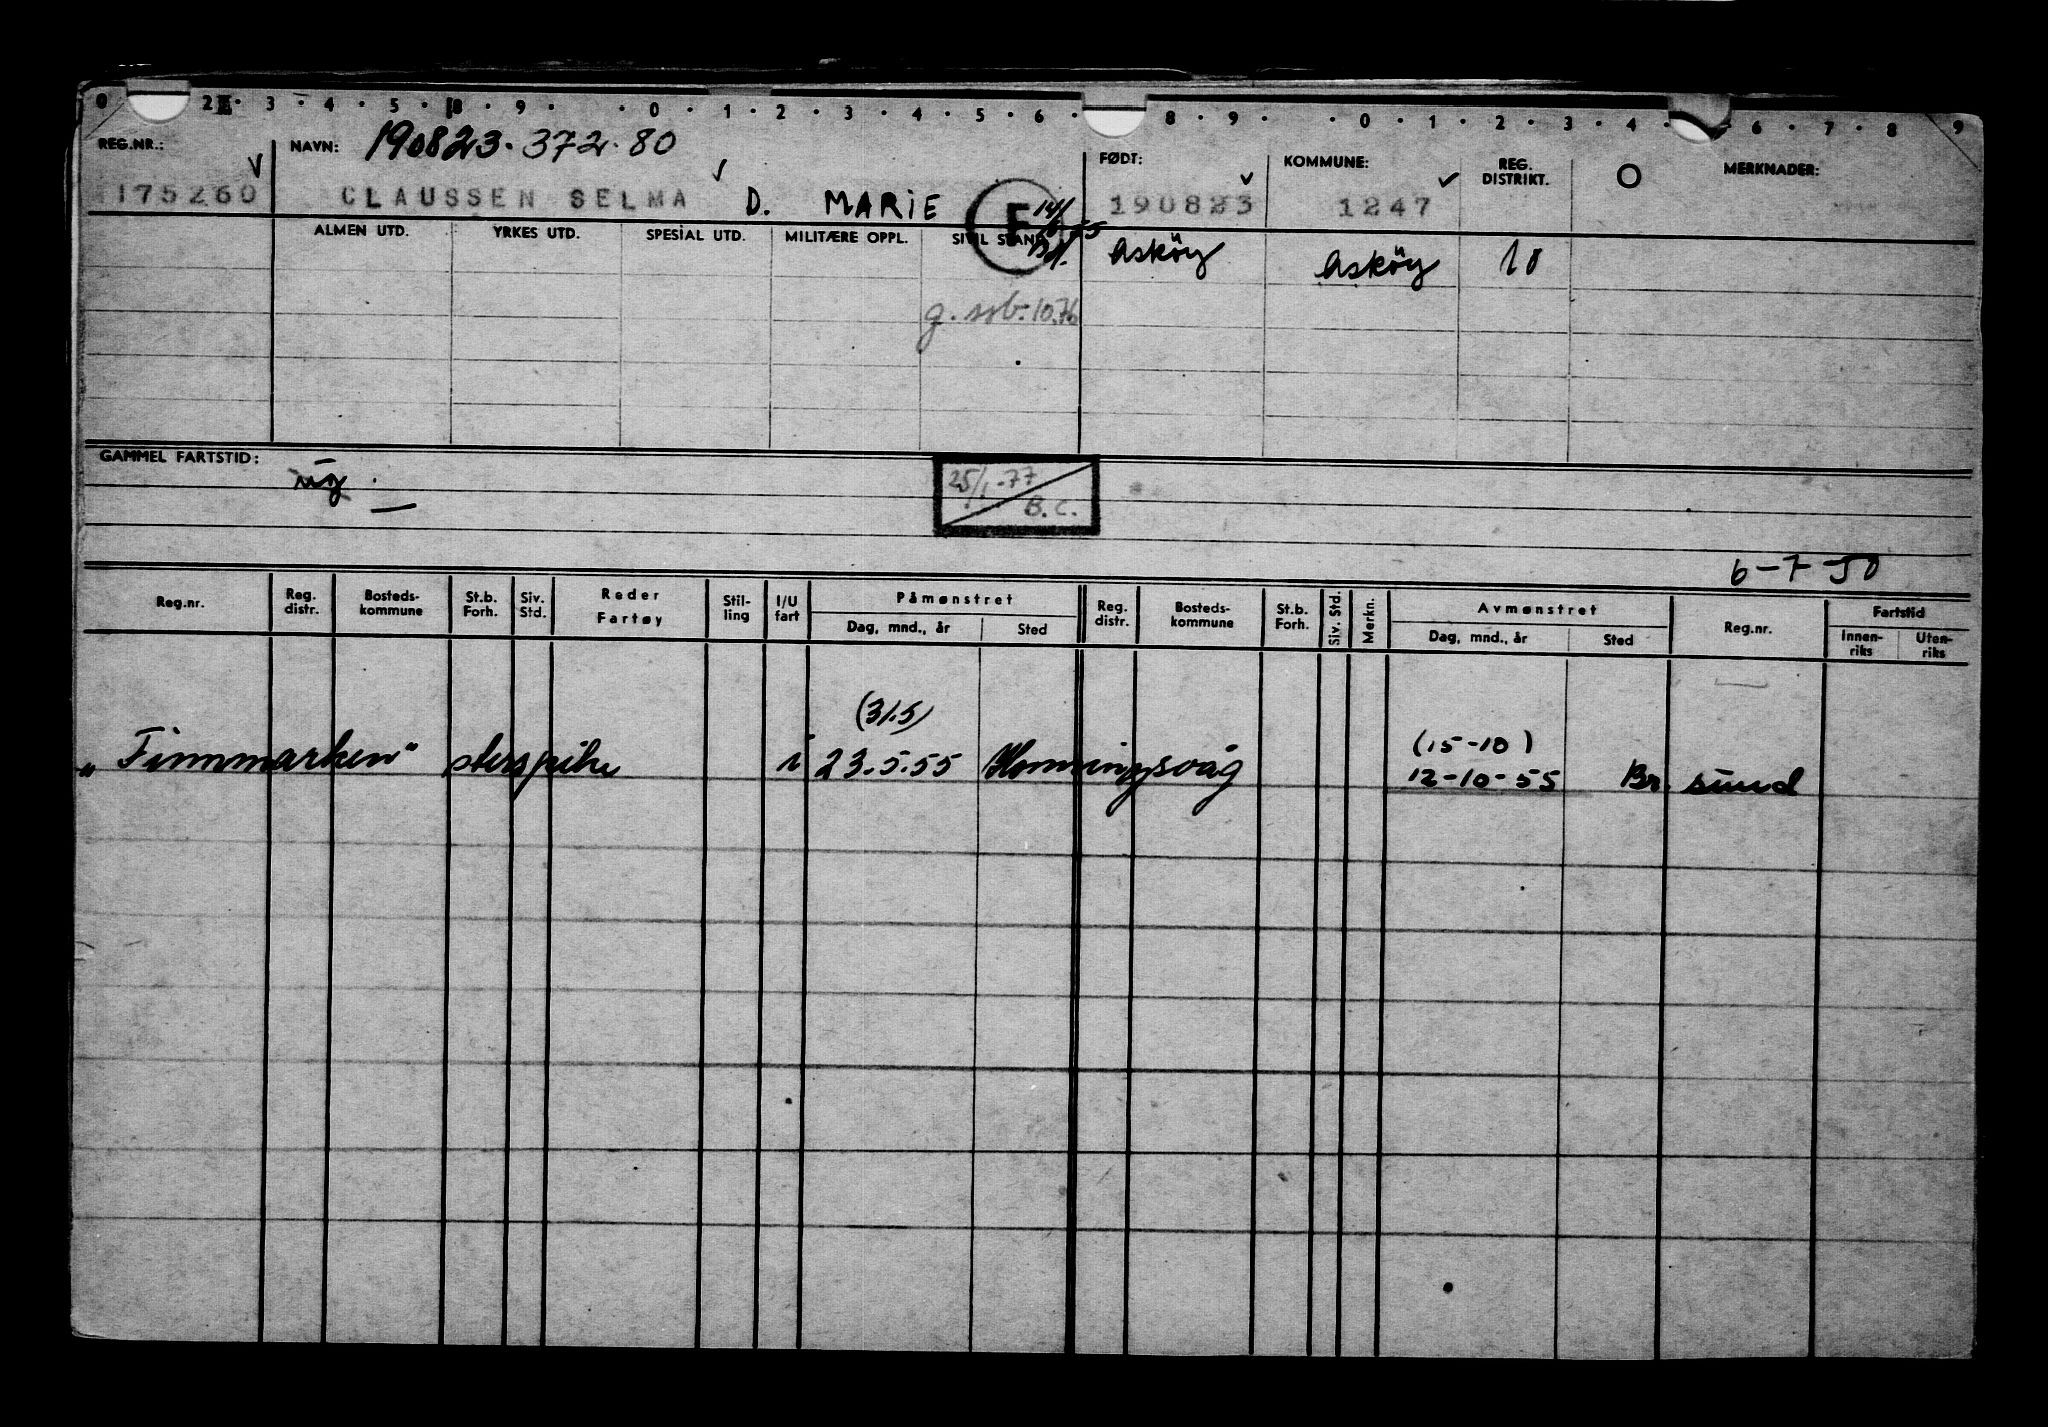 0 2 · 3 · 4 · 5 · 8 · 9 · · 0 · 1 · 2 · 3 · 4 · 5 · 6 · 8 · 9 · · 0 · 1 · 2 · 3 · 4 · 6 · 7 · 8 9
REG.NR.: NAVN: 190823. 372. 80 FØDT: KOMMUNE: REG. DISTRIKT. O MERKNADER:
175260 CLAUSSEN SELMA D. MARIE F 190823 1247
ALMEN UTD. YRKES UTD. SPESIAL UTD. MILITÆRE OPPL. SIVIL STAND Asköy Asköy 18
g. 10.76
GAMMEL FARTSTID:
25/1.-77
B.C.
6-7-50
Reg.nr. Reg. distr. Bosteds- kommune St.b. Forh. Siv. Std. Reder Fartøy Stil- ling I/U fart Påmønstret Reg. distr. Bosteds- kommune St.b. Forh. Siv. Std. Merkn. Avmønstret Reg.nr. Fartstid
Dag, mnd., år Sted Dag, mnd., år Sted Innen- riks Uten- riks
(31.5) (15-10)
"Finnmarken" i 23.5.55 Honningsvåg 12-10-55 Br. sund